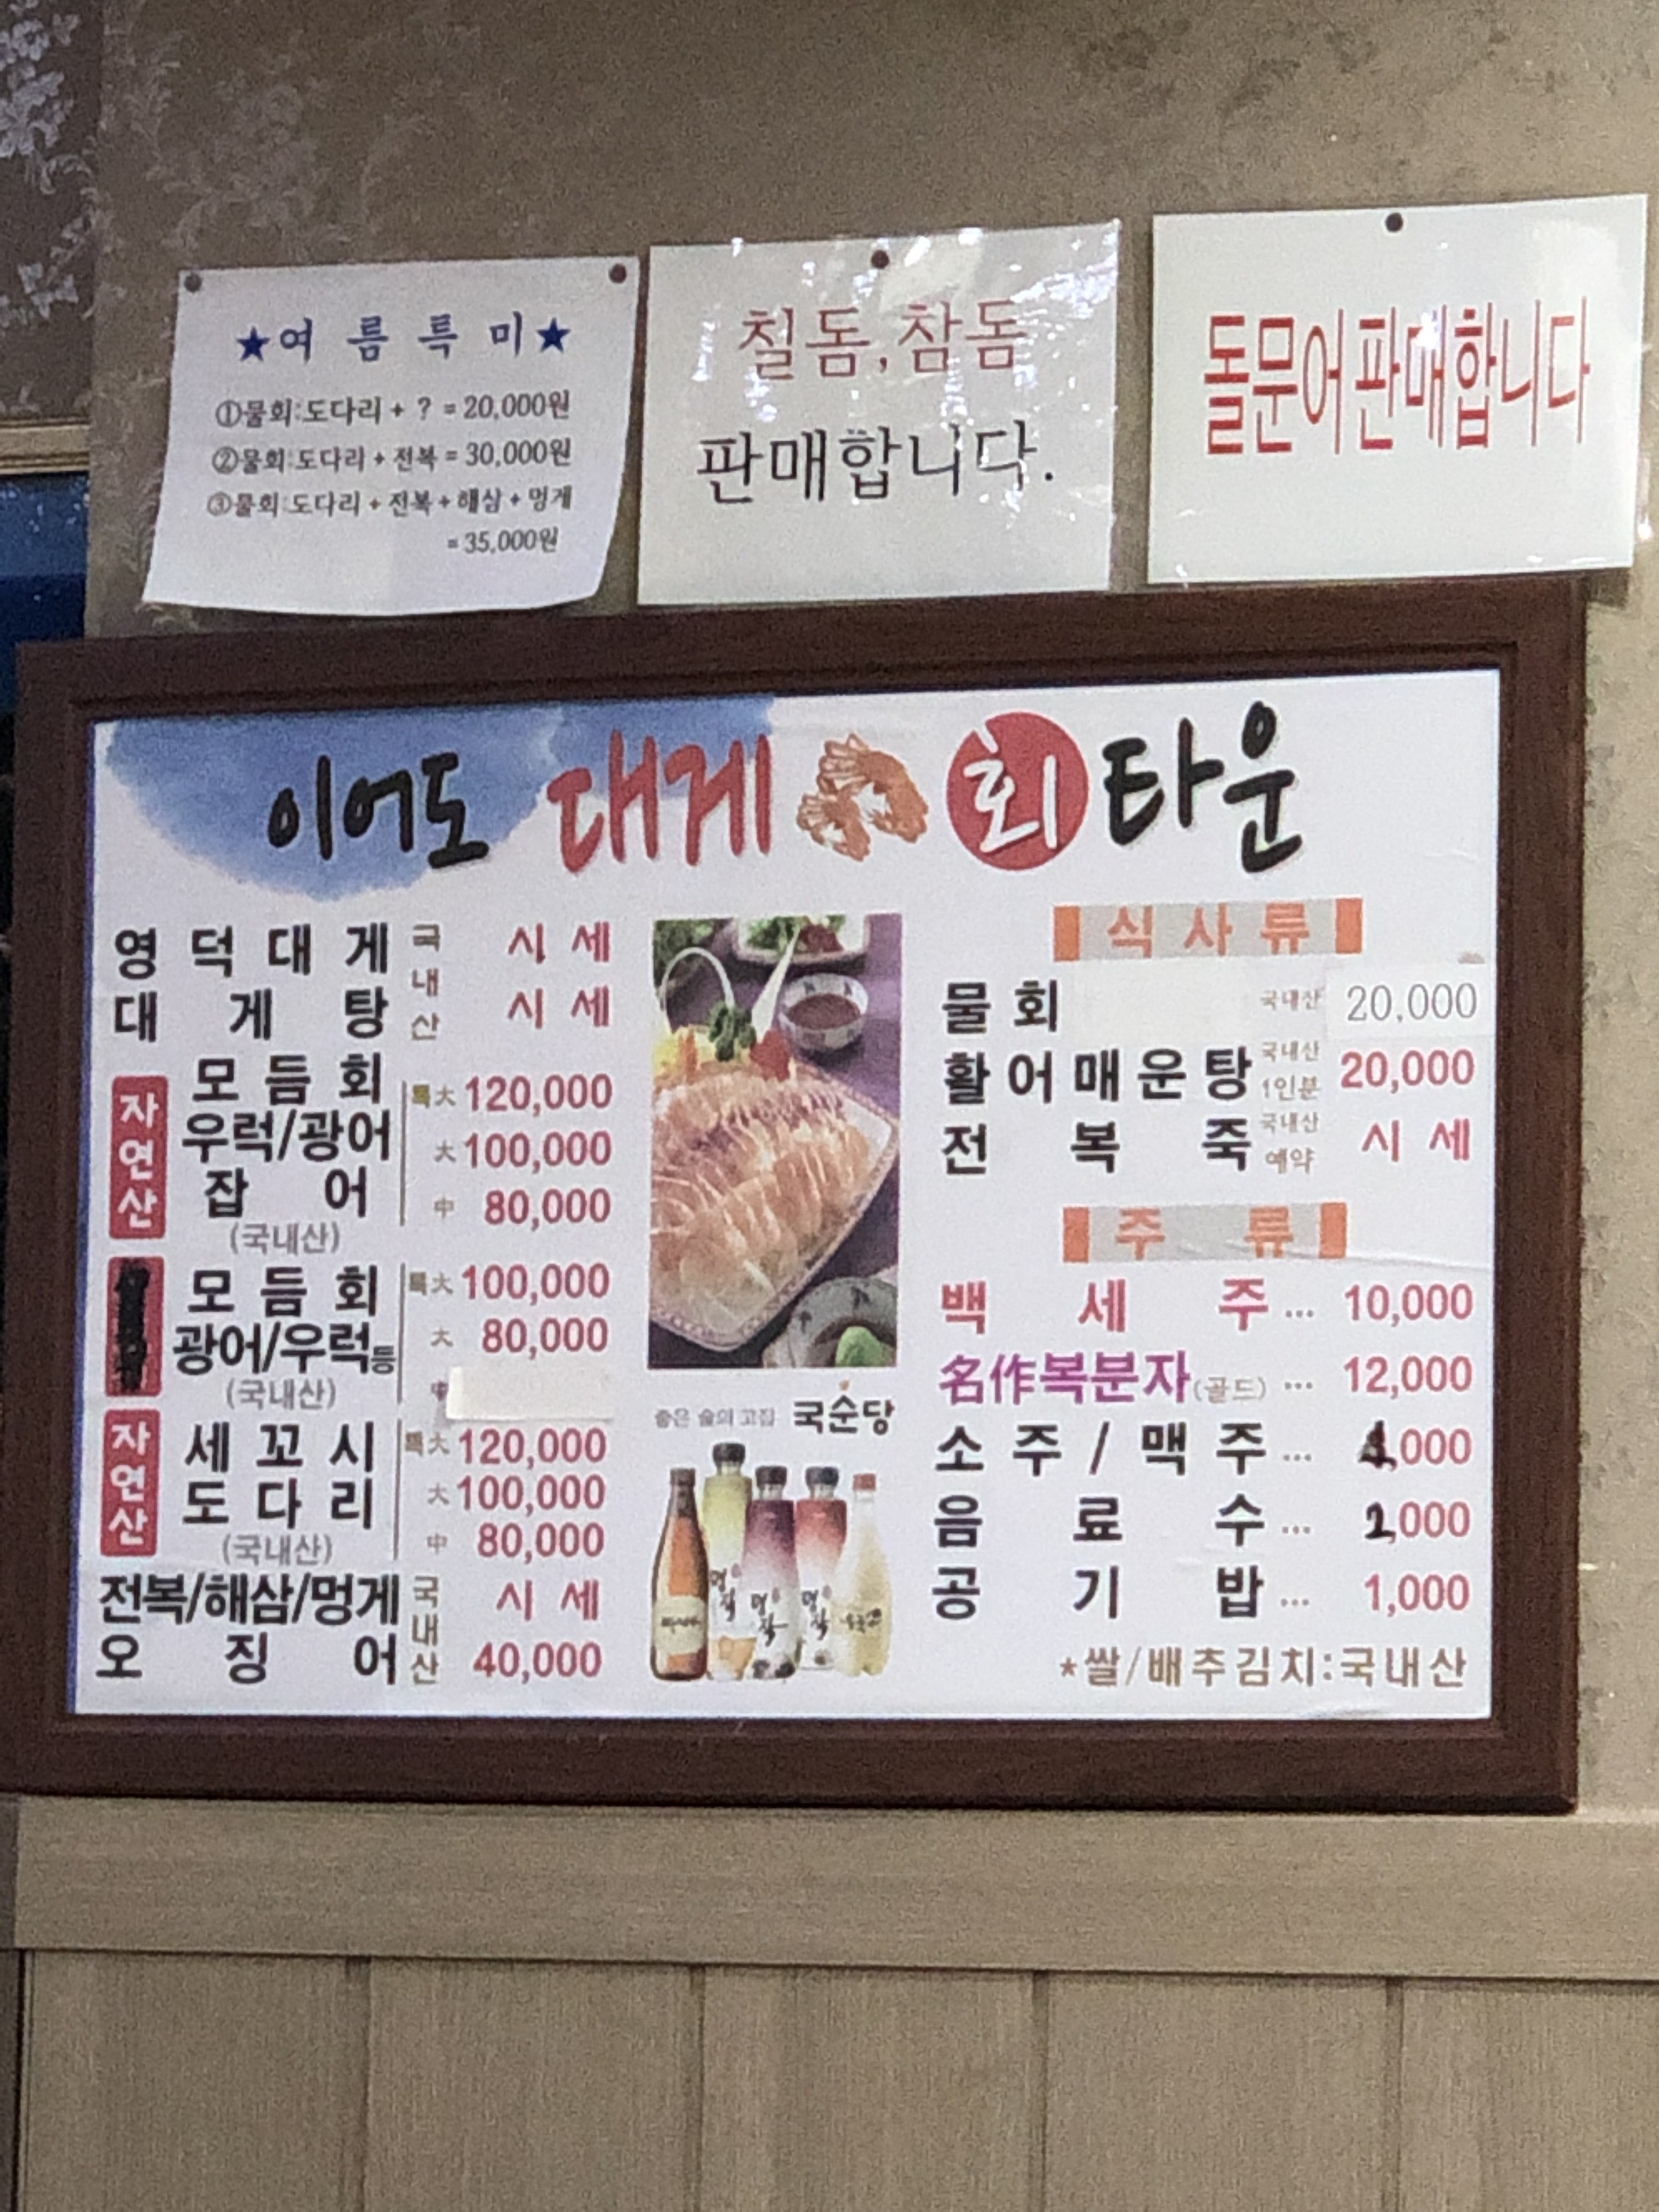 ★여름특미★
①물회:도다리 + ? = 20,000원
②물회:도다리 + 전복 = 30,000원
③물회:도다리 + 전복 + 해삼 + 멍게
= 35,000원
칠돔,참돔
판매합니다.
돌문어 판매합니다
이어도 대게 회 타운
영덕대게 국내산 시세
대게탕 시세
자연산
모듬회
우럭/광어
잡어
(국내산)
특大 120,000
大 100,000
中 80,000
모듬회
광어/우럭등
(국내산)
특大 100,000
大 80,000
자연산
세꼬시
도다리
(국내산)
특大 120,000
大 100,000
中 80,000
전복/해삼/멍게 국내산 시세
오징어 40,000
좋은 술의 고집 국순당
식사류
물회 국내산 20,000
활어매운탕 국내산 1인분 20,000
전복죽 국내산 예약 시세
주류
백세주 ... 10,000
名作복분자(골드) ... 12,000
소주/맥주 ... ,000
음료수 ... 2,000
공기밥 ... 1,000
★쌀/배추김치:국내산